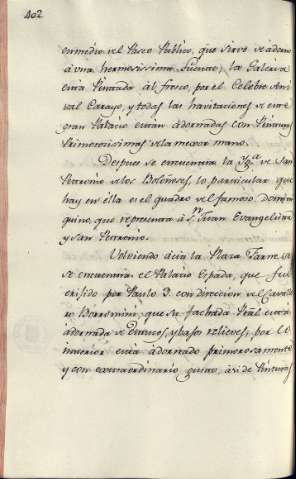 402
enmedio del Paseo Publico, que sirve de adorno
à una hermosissima Fuente; la Galeria
està Pintada àl fresco, por el Celebre Ani
val Carazo, y todas las havitaciones de este
gran Palacio están adornadas con Pinturas
Primorosisimas de la mejor mano.
Despues se encuentra la Igª. de San
Petronio de los Boloñeses, lo particular que
hay en ella es el quadro del famoso Domini
quino, que representa à Sn. Juan Evangelista
y San Petronio.
Volviendo àcia la Plaza Farnesia
se encuentra el Palacio Espada, que fue
erigido por Paulo 3. con direccion del Cavalle
ro Borromini, que su fachada Real està
adornada de Estucos, y baxos relieves, por lo
interior està àdornado primorosamente
y con extraordinario gusto, àsi de Pinturas